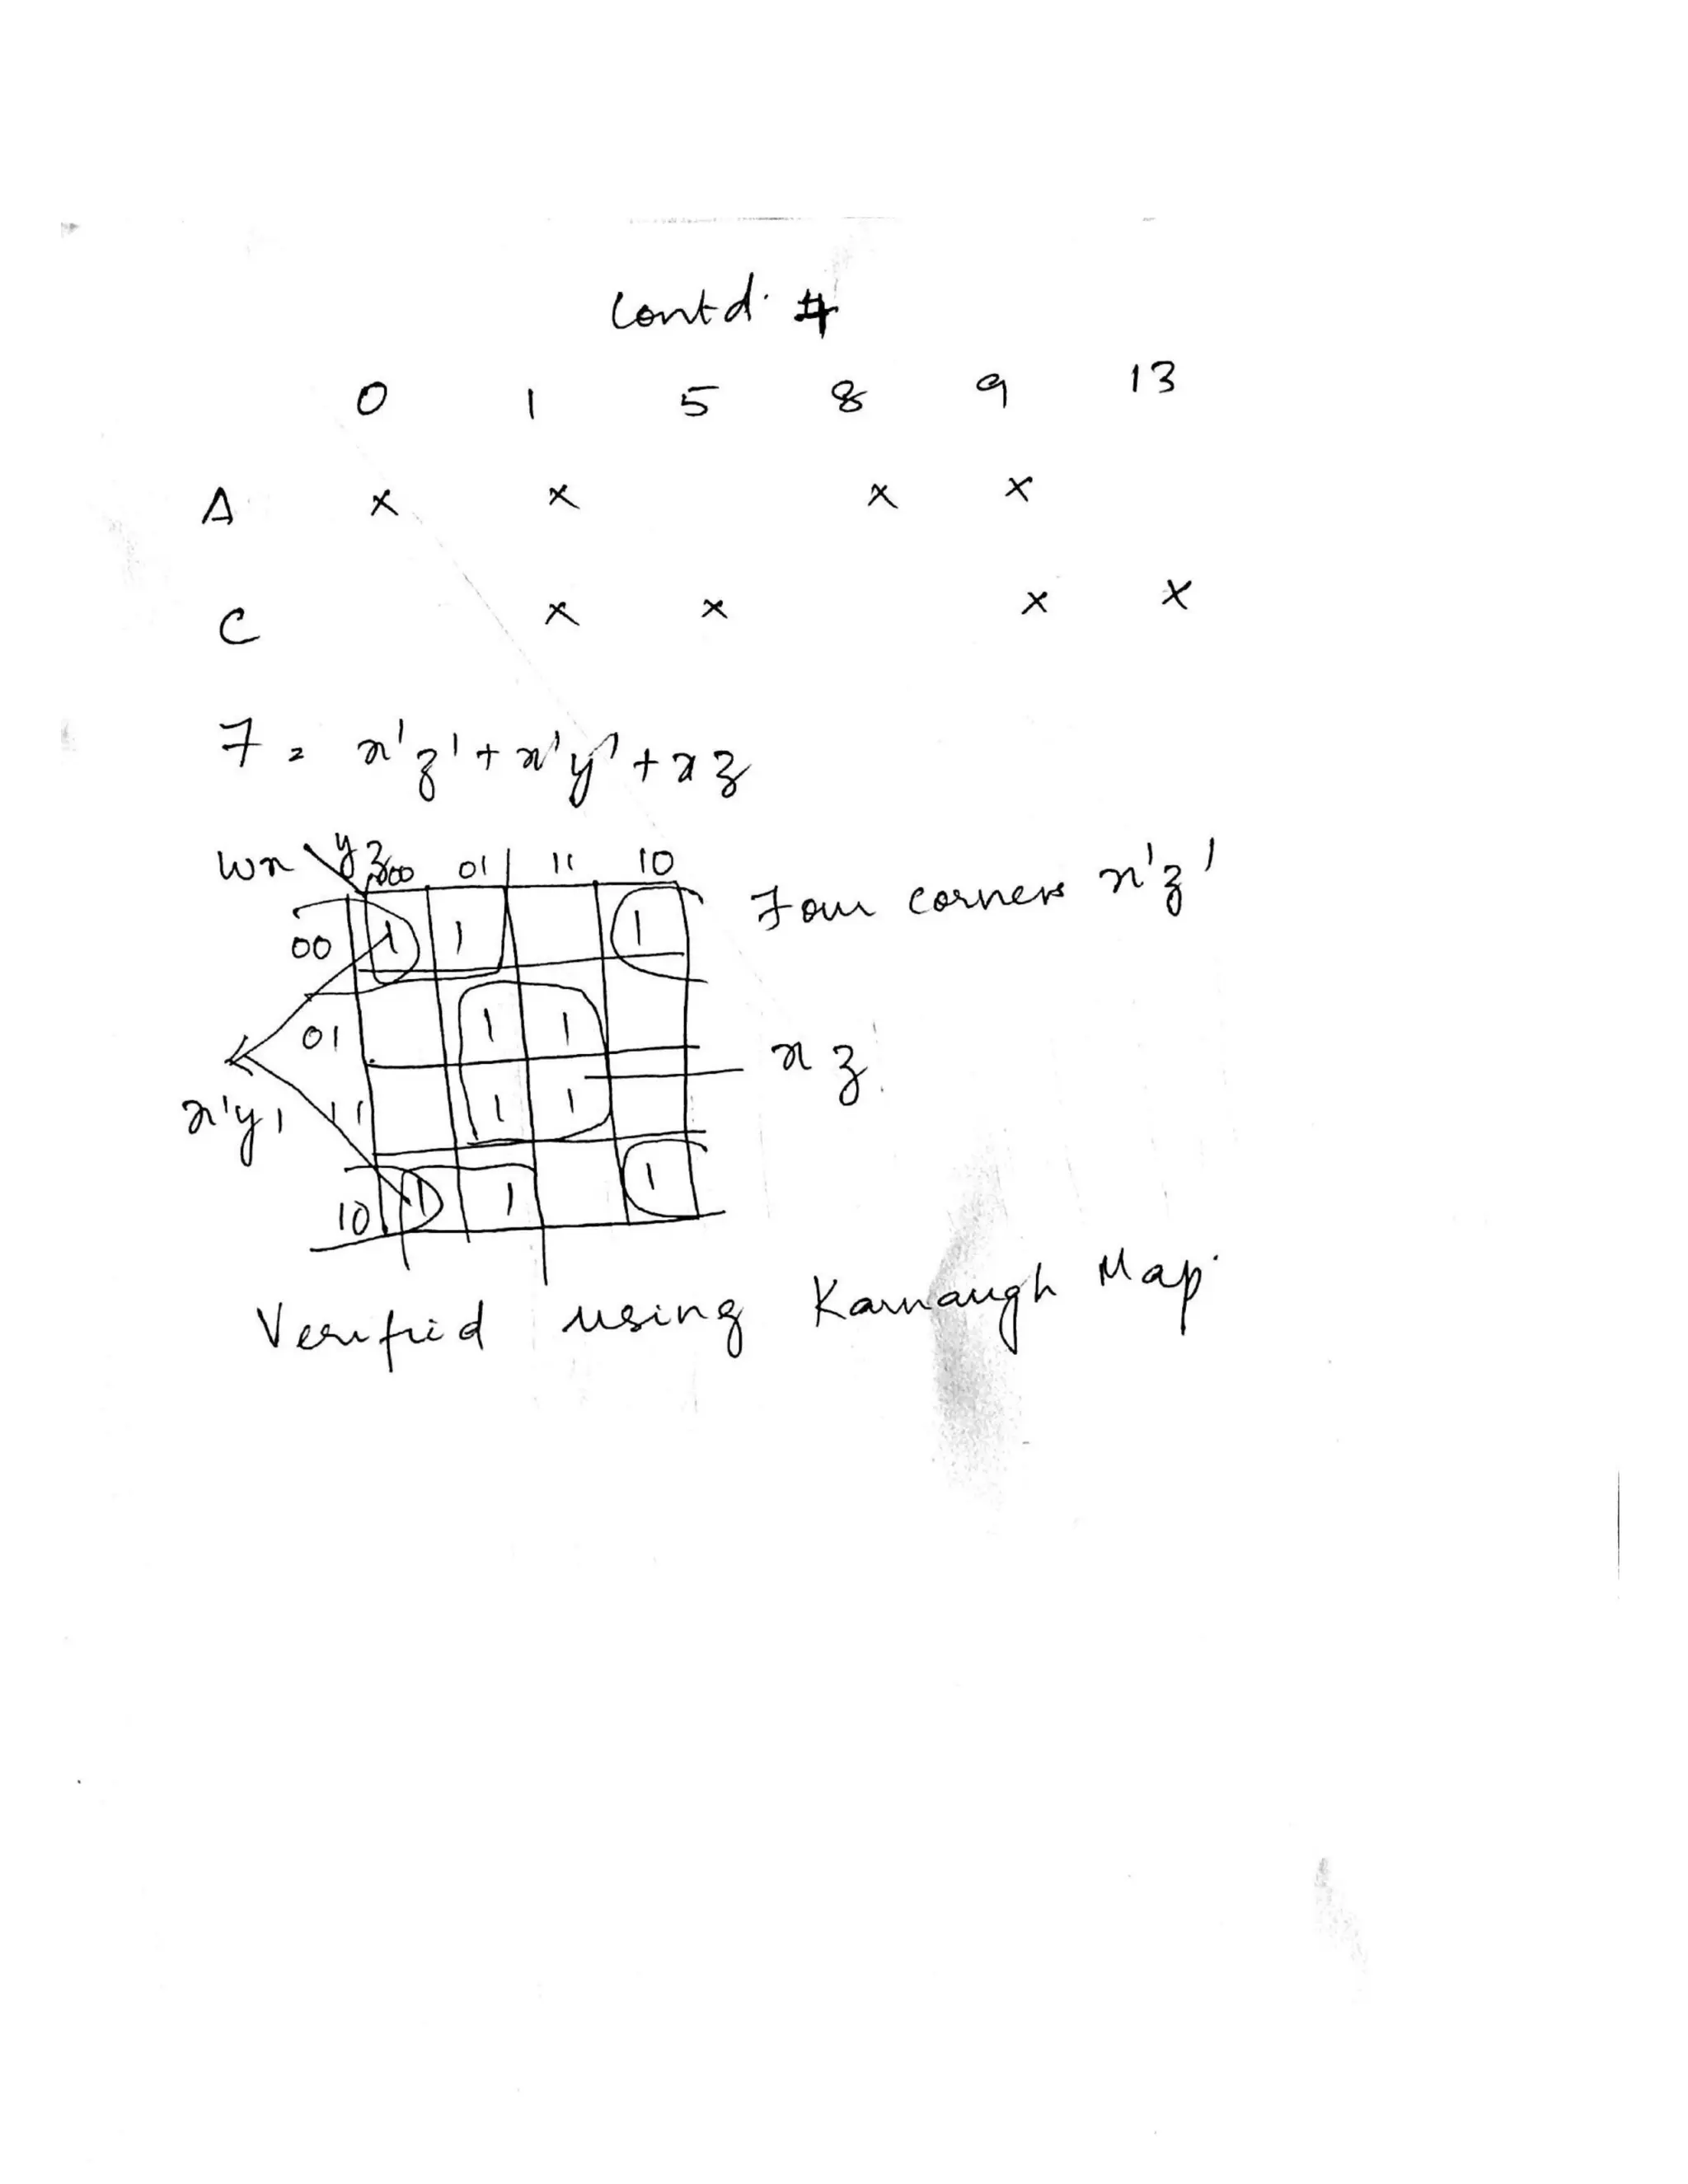 Contd. #
0 1 5 8 9 13
A x x x x
C x x x x
F = x'z' + x'y' + xz
wx yz 00 01 11 10
00 1 1 1 Four corners x'z'
01 1 1 xz
x'y' 11 1 1
10 1 1 1
Verified using Karnaugh Map.